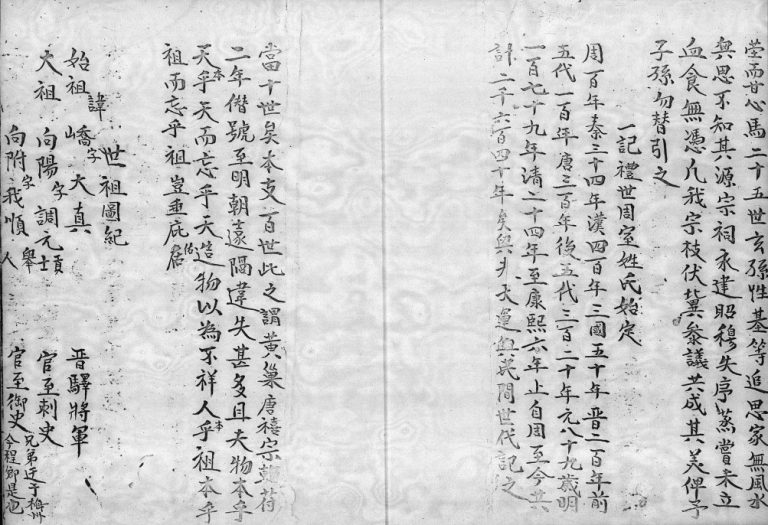 塋而甘心馬二十五世玄孫性基等追思家無風水
與思不知其源宗祠永建昭穆失序蒸嘗未立
血食無憑凡我宗枝伏冀叅議共成其美俾子
子孫勿替引之
一記禮世周室姓氏始定
周百年秦三十四年漢四百年三國五十年晋二百年前
五代一百年唐三百年後五代三百二十年元八十九歲明
一百七十九年清二十四年至康熙六年止自周至今共
計二千六百四十年矣與天運與民間世代記之
當十世矣本支百世此之謂黄巢唐禧宗乾符
二年僭號至明朝遠隔違失甚多且夫物本乎
天乎本天而忘乎天造物以為不祥人乎本祖本乎
祖而忘乎祖豈垂庇佑
世祖圖紀
始祖諱嶠字大真 晋驛將軍
大祖 向陽字調元貢士 官至刺史
向附字我順舉人 官至御史兄弟迁于梅州今程鄉是也